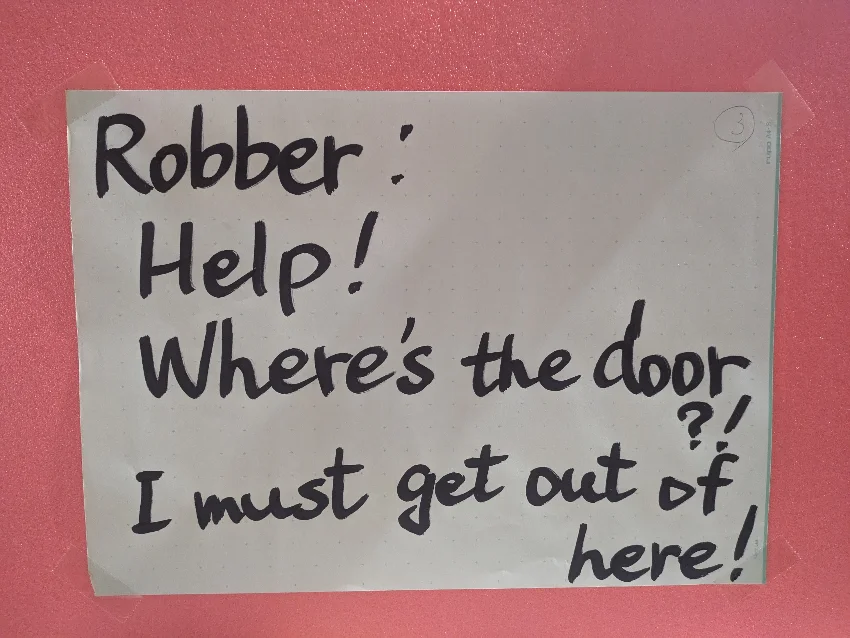 3
Robber :
Help!
Where's the door
?!
I must get out of
here!